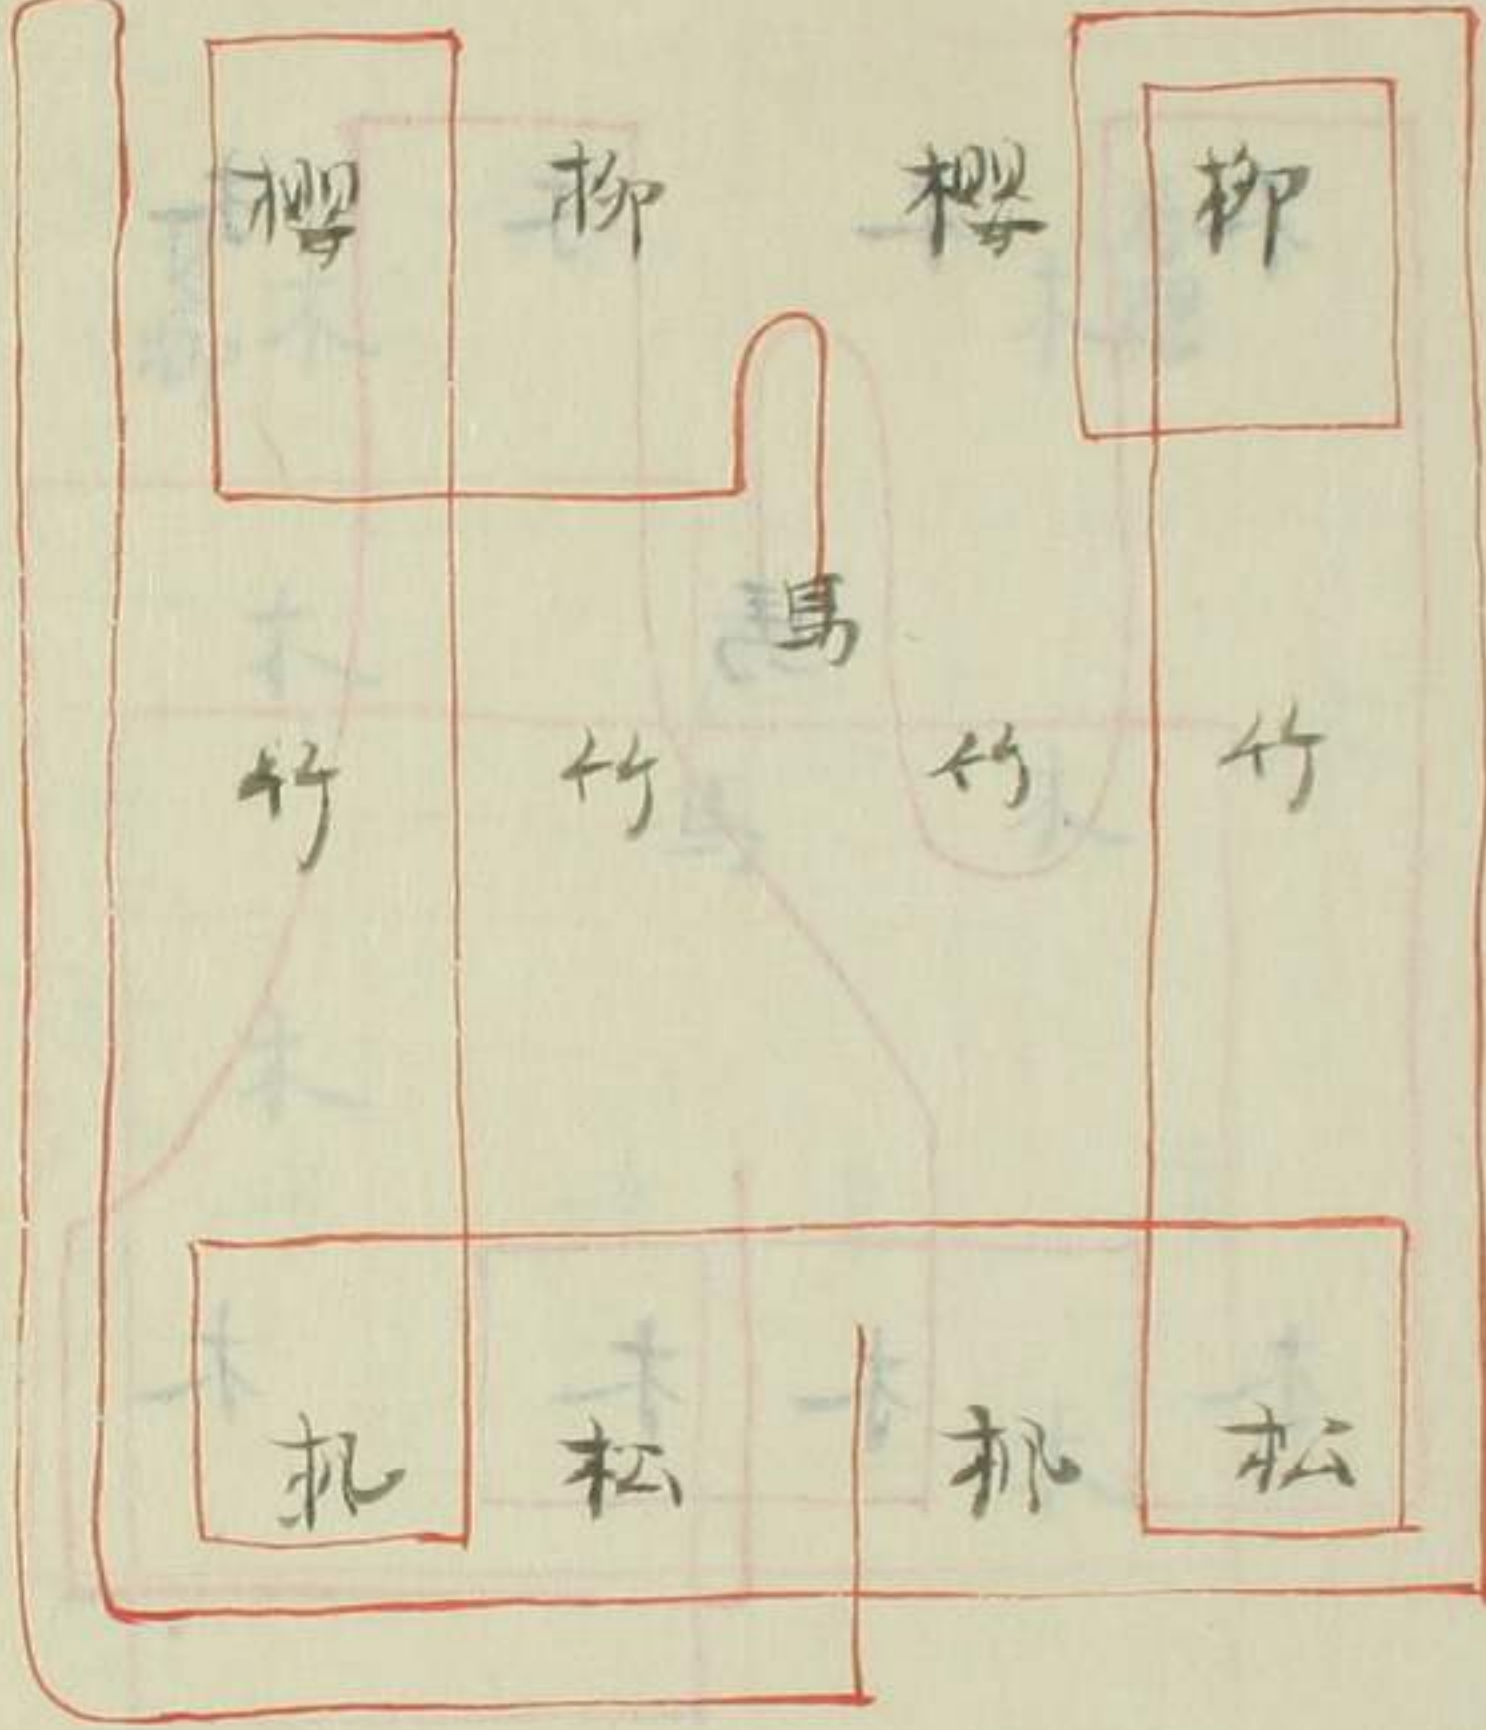 櫻 柳 櫻 柳
馬
竹 竹 竹 竹
机 松 枫 松